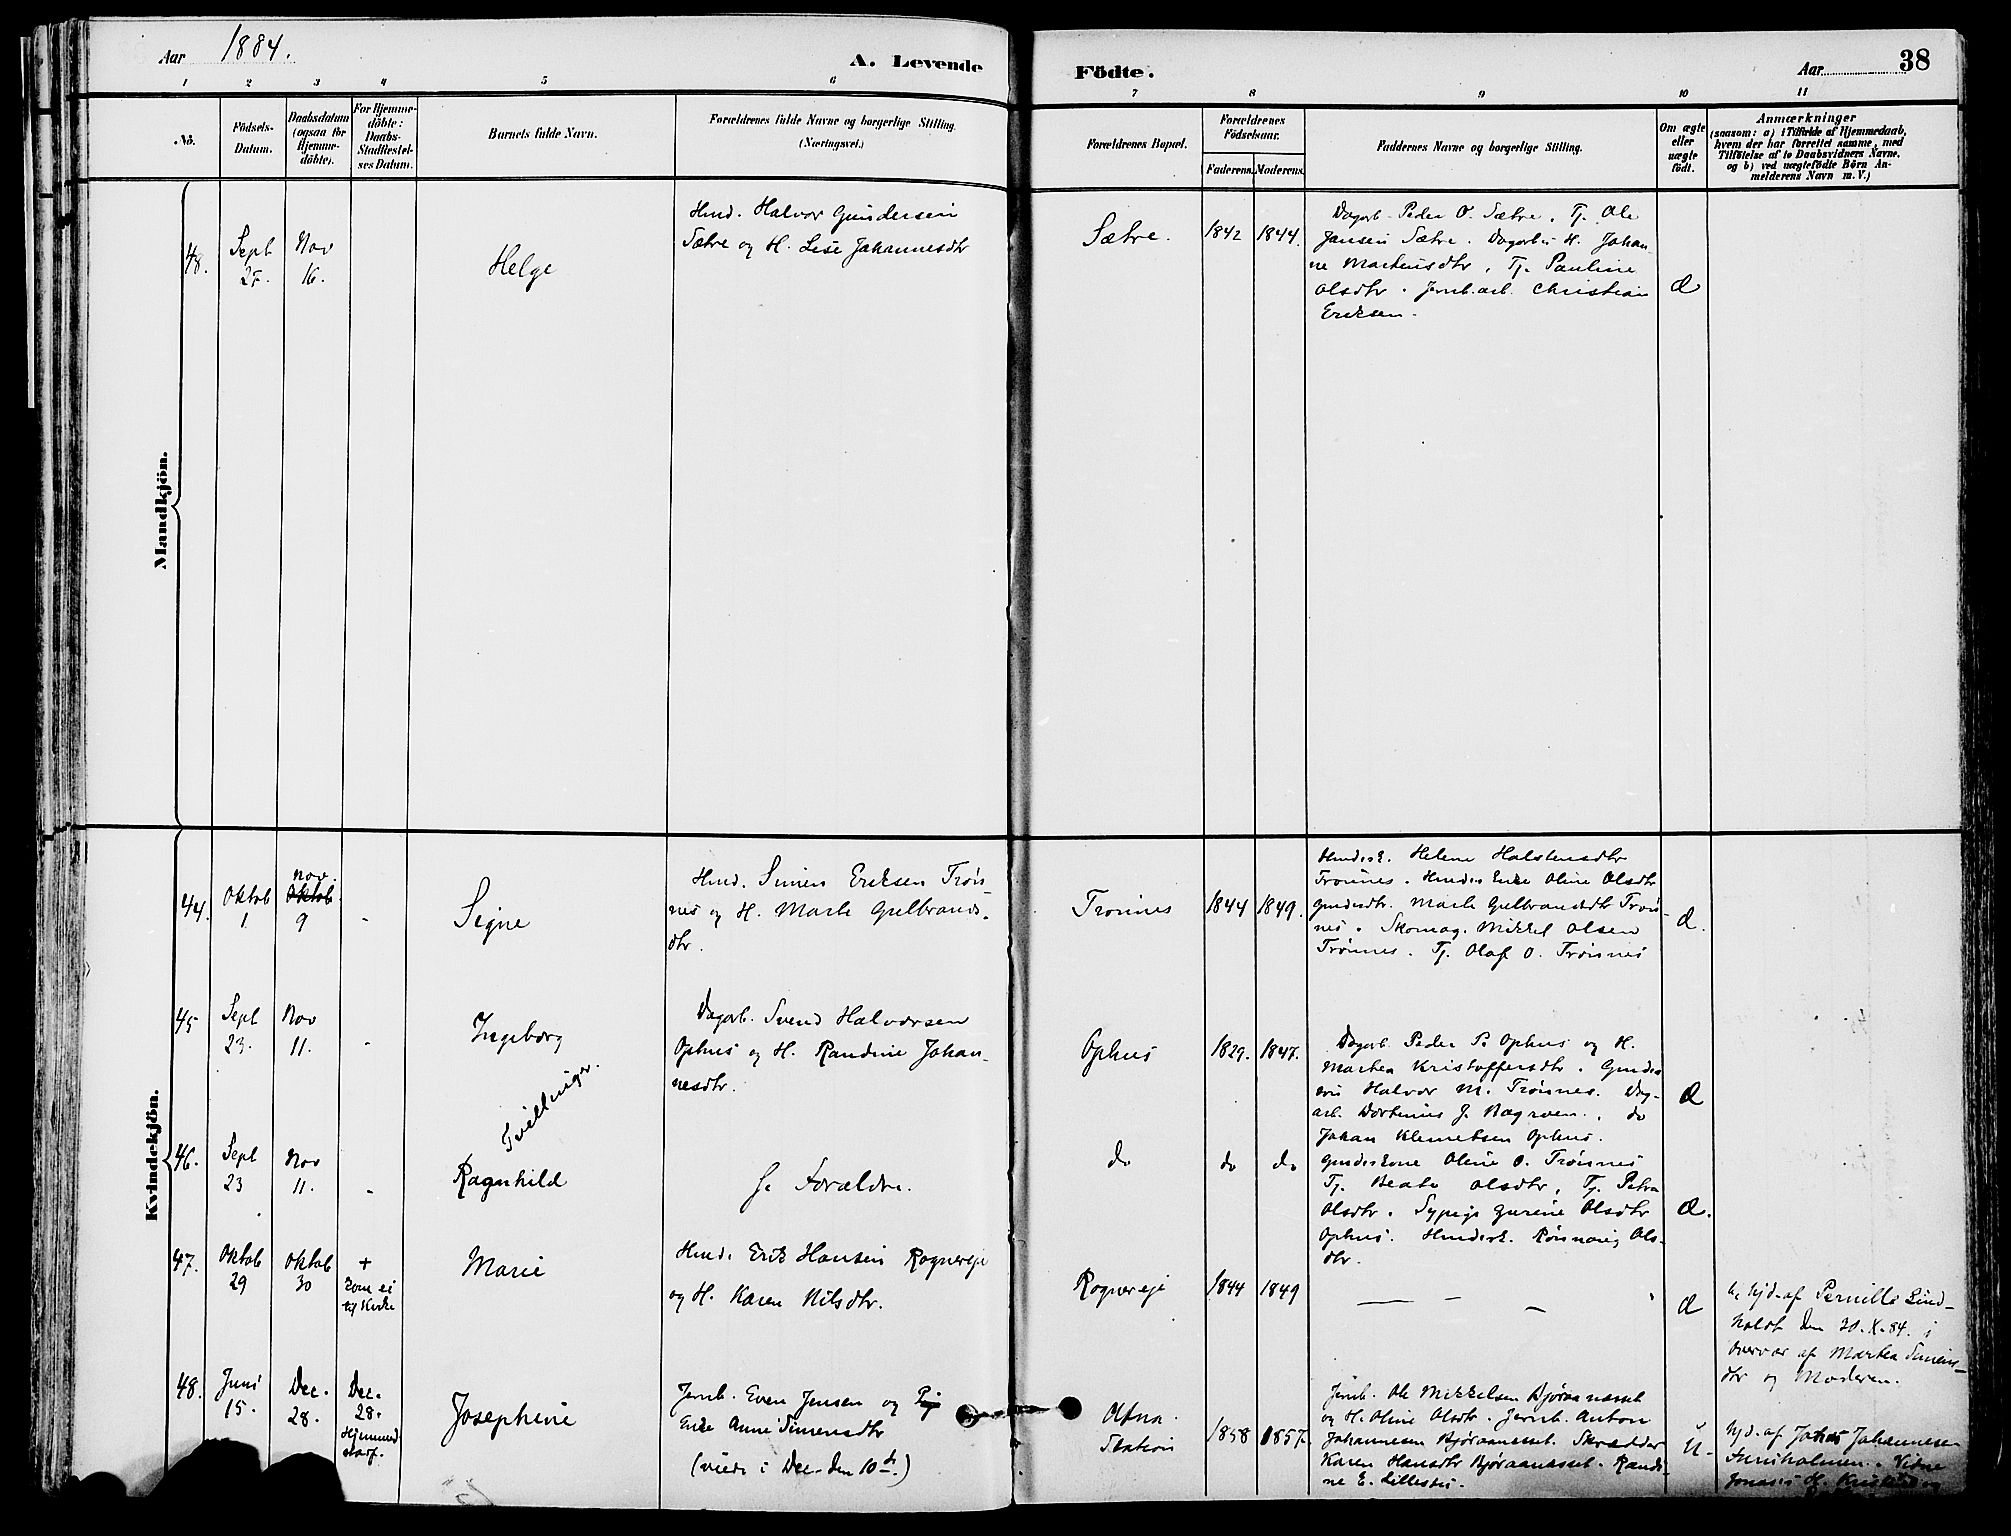 Aar 1884.
A. Levende
Födte.
Aar
38
1 2 3 4 5 6
7 8 9 10 11
No.
Födsels-
Datum.
Daabsdatum
(ogsaa for
Hjemme-
döbte).
For Hjemme-
döbte:
Daabs-
Stadfæstel-
ses Datum.
Barnets fulde Navn.
Forældrenes fulde Navne og borgerlige Stilling.
(Næringsvei.)
Forældrenes Bopæl.
Forældrenes
Födselsaar.
Faderens.
Moderens.
Faddernes Navne og borgerlige Stilling.
Om ægte
eller
uægte
født.
Anmærkninger
(saasom: a) i Tilfælde af Hjemmedaab,
hvem der har forrettet samme, med
Tilføielse af to Daabsvidners Navne,
og b) ved uægtefødte Börn An-
melderens Navn m. V.)
Mandkjön.
48.
Sept
27.
Nov
16.
Helge
Hmd. Halvor Gundersen
Sætre og H. Lise Johannesdtr
Sætre.
1842
1844.
Dagarb. Peder O. Sætre. Tj. Ole
Jansen Sætre. Dagarb H. Johan-
ne Marthusdtr, Tj. Pauline
Olsdtr. Jernb.arb. Christian
Eriksen.
Kvindekjön.
44.
Oktob
1
Nov.
Oktob
9
-
Signe
Hmd. Simen Eriksen Trøn-
nes og H. Marte Gulbrands-
dtr.
Trønnes
1844
1849.
Helene Halstensdtr
Trønnes. Enke Oline Olsdtr
Marte Gulbrandsdtr Trøn-
nes. Skomag. Mikkel Olsen
Trønnes. Tj. Olaf O. Trønnes
45
Sept
23.
Nov
11.
-
Ingeborg
Dagarb. Svend Halvorsen
Ophus og H. Randine Johan-
nesdtr.
Ophus
1829.
1847.
Dagarb Peder P. Ophus og H.
Marthea Kristoffersdtr. Gmdes
søn Halvor M. Trønnes. Dag-
arb. J. do
Johan Klemetsen Ophus.
Tvillinger.
46.
Sept
23
Nov
11.
-
Ragnhild
Se Forældre.
do
do
do
Gmdeskone Oline O. Trønnes
Tj. Beate Olsdtr, Tj. Petra
Olsdtr. Sypige Gurine Olsdtr
Ophus. Rønnaug Ols-
dtr.
47.
Oktob
29
Oktob
30
+
kom ei
til Kirke
Marie
Hmd. Erik Hansen Rognveje
og H. Karen Nilsdtr.
Rognveje
1844
1849
— — —
hjd. af Pernille Lind-
holdt den 30.X.84. i
Overvær af Marthea Simens-
dtr og Moderen.
48.
Juni
15.
Dec.
28.
Dec.
28.
Hjemmed
Josephine
Jernb. Even Jensen og Pig
Enke Anne Simensdtr
(viede i Dec. den 10de.)
Atna
Station
1858
1857.
Jernb. Ole Mikkelsen Bjøraanæsset
og H. Oline Olsdtr. Jernb. Anton
Johannesen Bjøraanæsset. Skrædder
Karen Hansdtr Bjøraanæsset. Randi-
ne E. Lillestu.
u.
hjd. af Johannesen
Vidne
Jonas